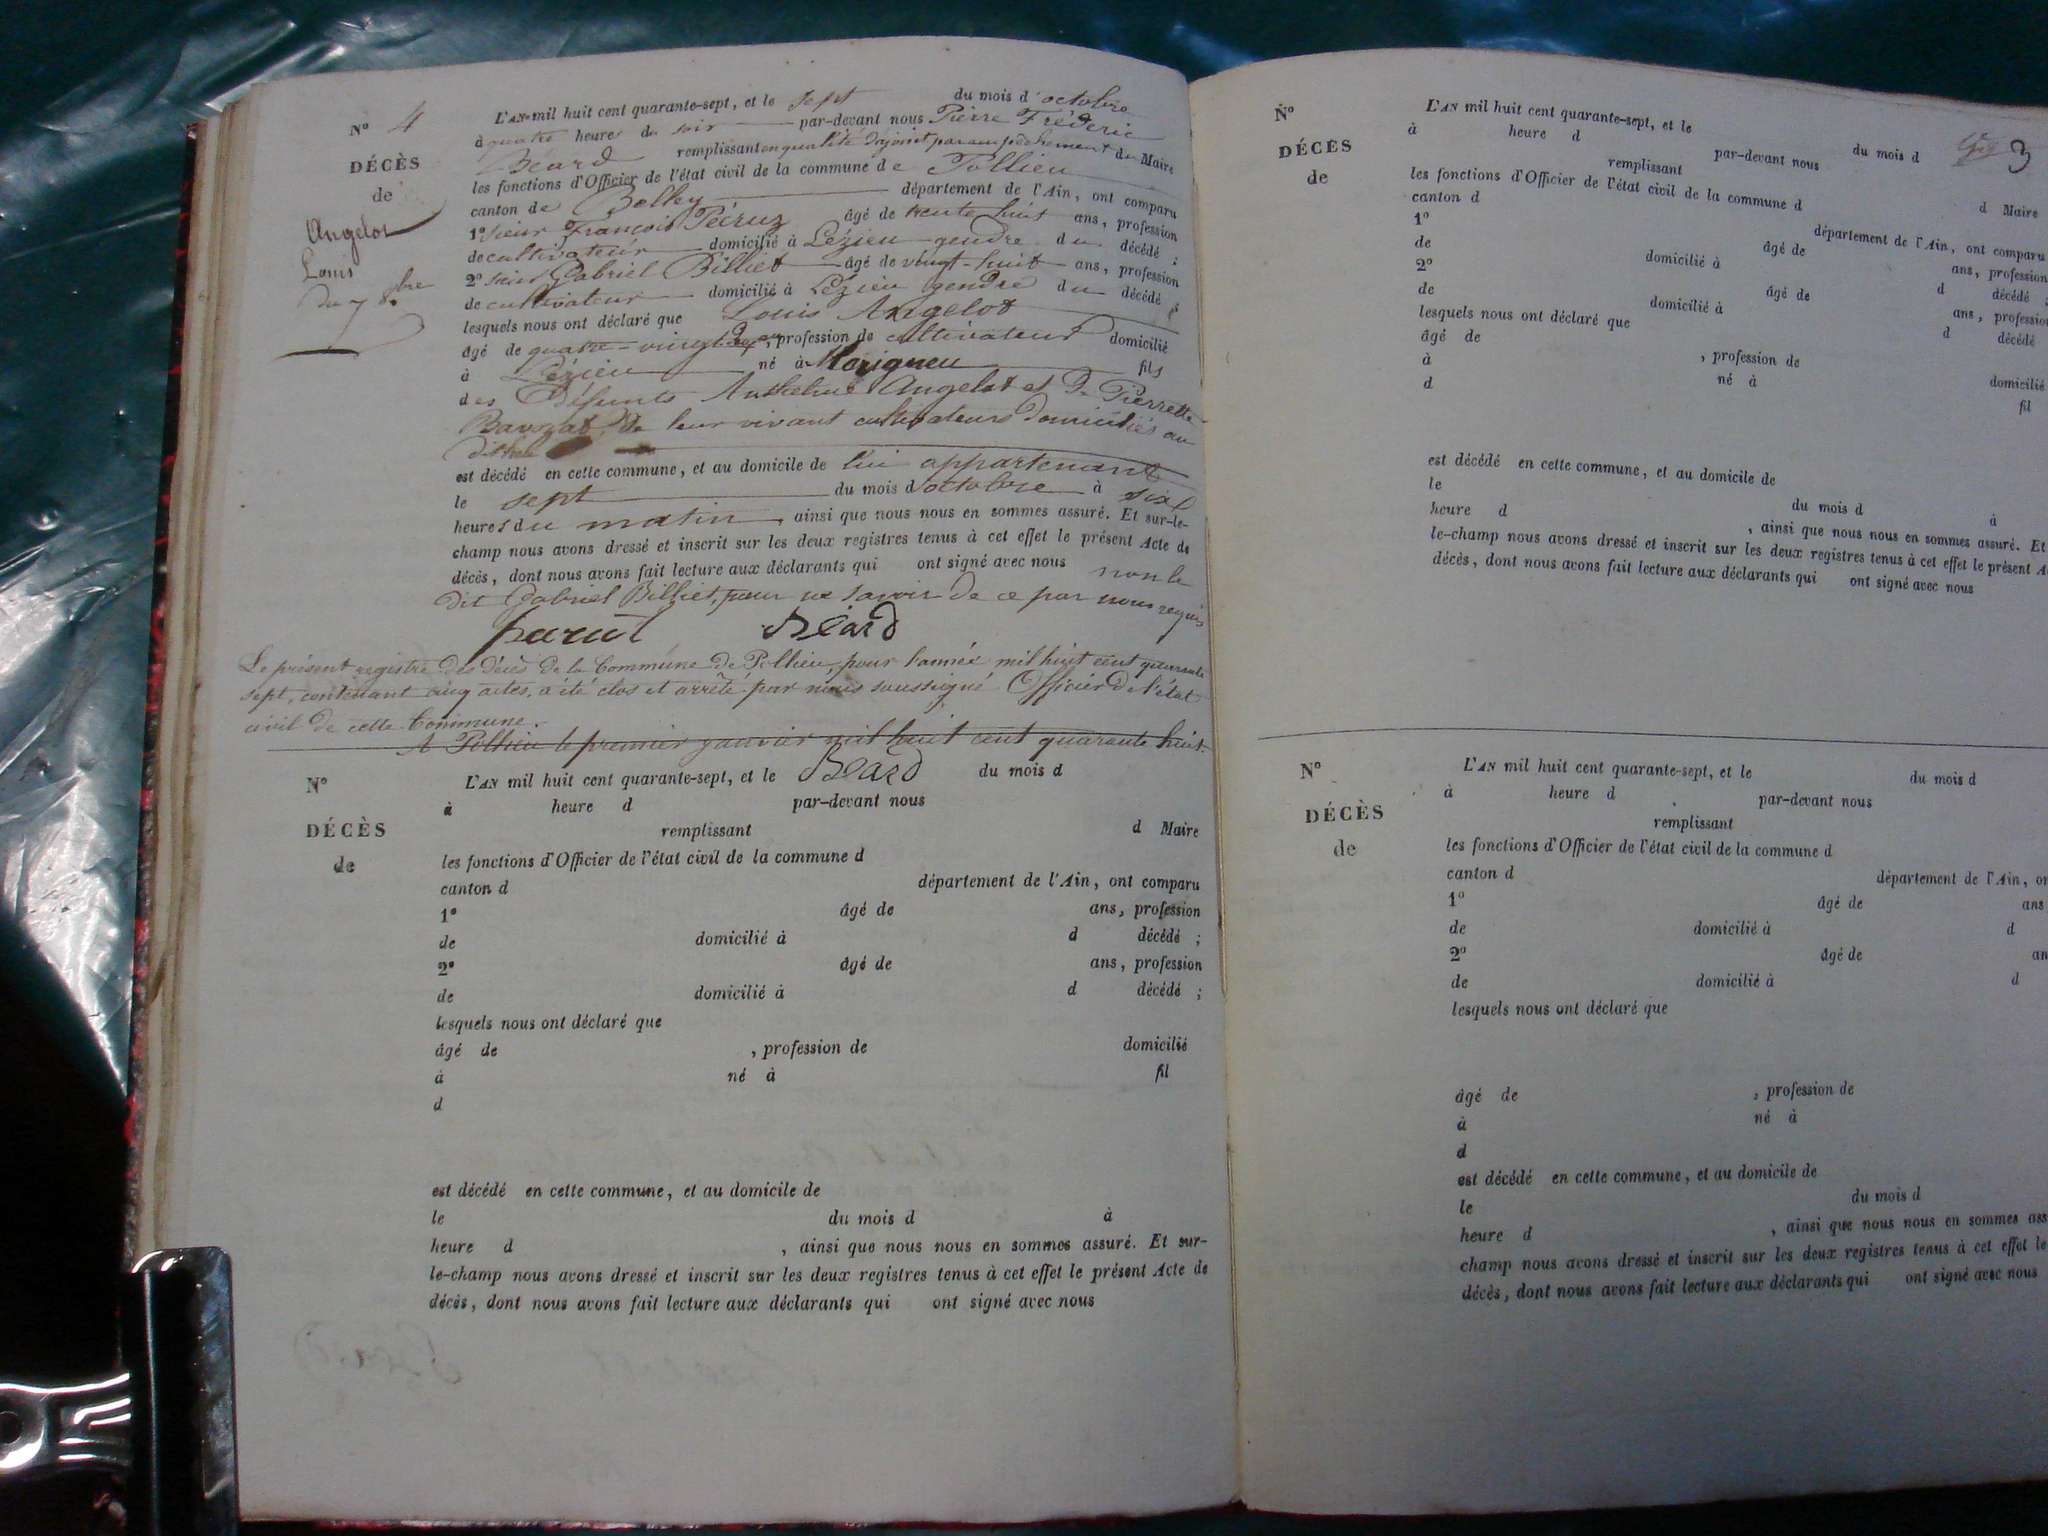 N° 4
DÉCÈS
de
Angelot
Louis
du 7 8.bre
L'AN mil huit cent quarante-sept, et le sept du mois d'octobre
à quatre heures du soir par-devant nous Pierre Fréderic
Béard remplissant en qualité d'adjoint par empêchement du Maire
les fonctions d'Officier de l'état civil de la commune de Pollieu
canton de Belley département de l'Ain, ont comparu
1° sieur François Péruz âgé de trente huit ans, profession
de cultivateur domicilié à Lézieu gendre du décédé ;
2° sieur Gabriel Billiet âgé de vingt-huit ans, profession
de cultivateur domicilié à Lézieu gendre du décédé ;
lesquels nous ont déclaré que Louis Angelot
âgé de quatre-vingt , profession de cultivateur domicilié
à Lézieu né à Marigneu fils
des Défunts Anthelme Angelot et de Pierrette
Bavozat, de leur vivant cultivateurs domiciliés au
dit
est décédé en cette commune, et au domicile de lui appartenant
le sept du mois d'octobre à six
heures du matin, ainsi que nous nous en sommes assuré. Et sur-le-
champ nous avons dressé et inscrit sur les deux registres tenus à cet effet le présent Acte de
décès, dont nous avons fait lecture aux déclarants qui ont signé avec nous non le
dit Gabriel Billiet, pour ne savoir de ce par nous requis
Béard
Le présent registre des décès de la Commune de Pollieu, pour l'année mil huit cent quarante
sept, contenant cinq actes, a été clos et arrêté par nous soussigné Officier de l'état
civil de cette Commune.
A Pollieu le premier janvier mil huit cent quarante huit.
Béard
N°
DÉCÈS
de
L'AN mil huit cent quarante-sept, et le du mois d
à heure d par-devant nous
remplissant d Maire
les fonctions d'Officier de l'état civil de la commune d
canton d département de l'Ain, ont comparu
1° âgé de ans, profession
de domicilié à d décédé ;
2° âgé de ans, profession
de domicilié à d décédé ;
lesquels nous ont déclaré que
âgé de , profession de domicilié
à né à fil
d
est décédé en cette commune, et au domicile de
le du mois d à
heure d , ainsi que nous nous en sommes assuré. Et sur-
le-champ nous avons dressé et inscrit sur les deux registres tenus à cet effet le présent Acte de
décès, dont nous avons fait lecture aux déclarants qui ont signé avec nous
3
N°
DÉCÈS
de
L'AN mil huit cent quarante-sept, et le
à heure d par-devant nous du mois d
remplissant d Maire
les fonctions d'Officier de l'état civil de la commune d
canton d département de l'Ain, ont comparu
1° âgé de ans, profession
de domicilié à d décédé ;
2° âgé de ans, profession
de domicilié à d décédé
lesquels nous ont déclaré que
âgé de , profession de domicilié
à né à fil
d
est décédé en cette commune, et au domicile de
le du mois d à
heure d , ainsi que nous nous en sommes assuré. Et
le-champ nous avons dressé et inscrit sur les deux registres tenus à cet effet le présent A
décès, dont nous avons fait lecture aux déclarants qui ont signé avec nous
N°
DÉCÈS
de
L'AN mil huit cent quarante-sept, et le du mois d
à heure d par-devant nous
remplissant
les fonctions d'Officier de l'état civil de la commune d
canton d département de l'Ain, on
1° âgé de ans
de domicilié à d
2° âgé de an
de domicilié à d
lesquels nous ont déclaré que
âgé de , profession de
à né à
d
est décédé en cette commune, et au domicile de
le du mois d
heure d , ainsi que nous nous en sommes ass
champ nous avons dressé et inscrit sur les deux registres tenus à cet effet le
décès, dont nous avons fait lecture aux déclarants qui ont signé avec nous